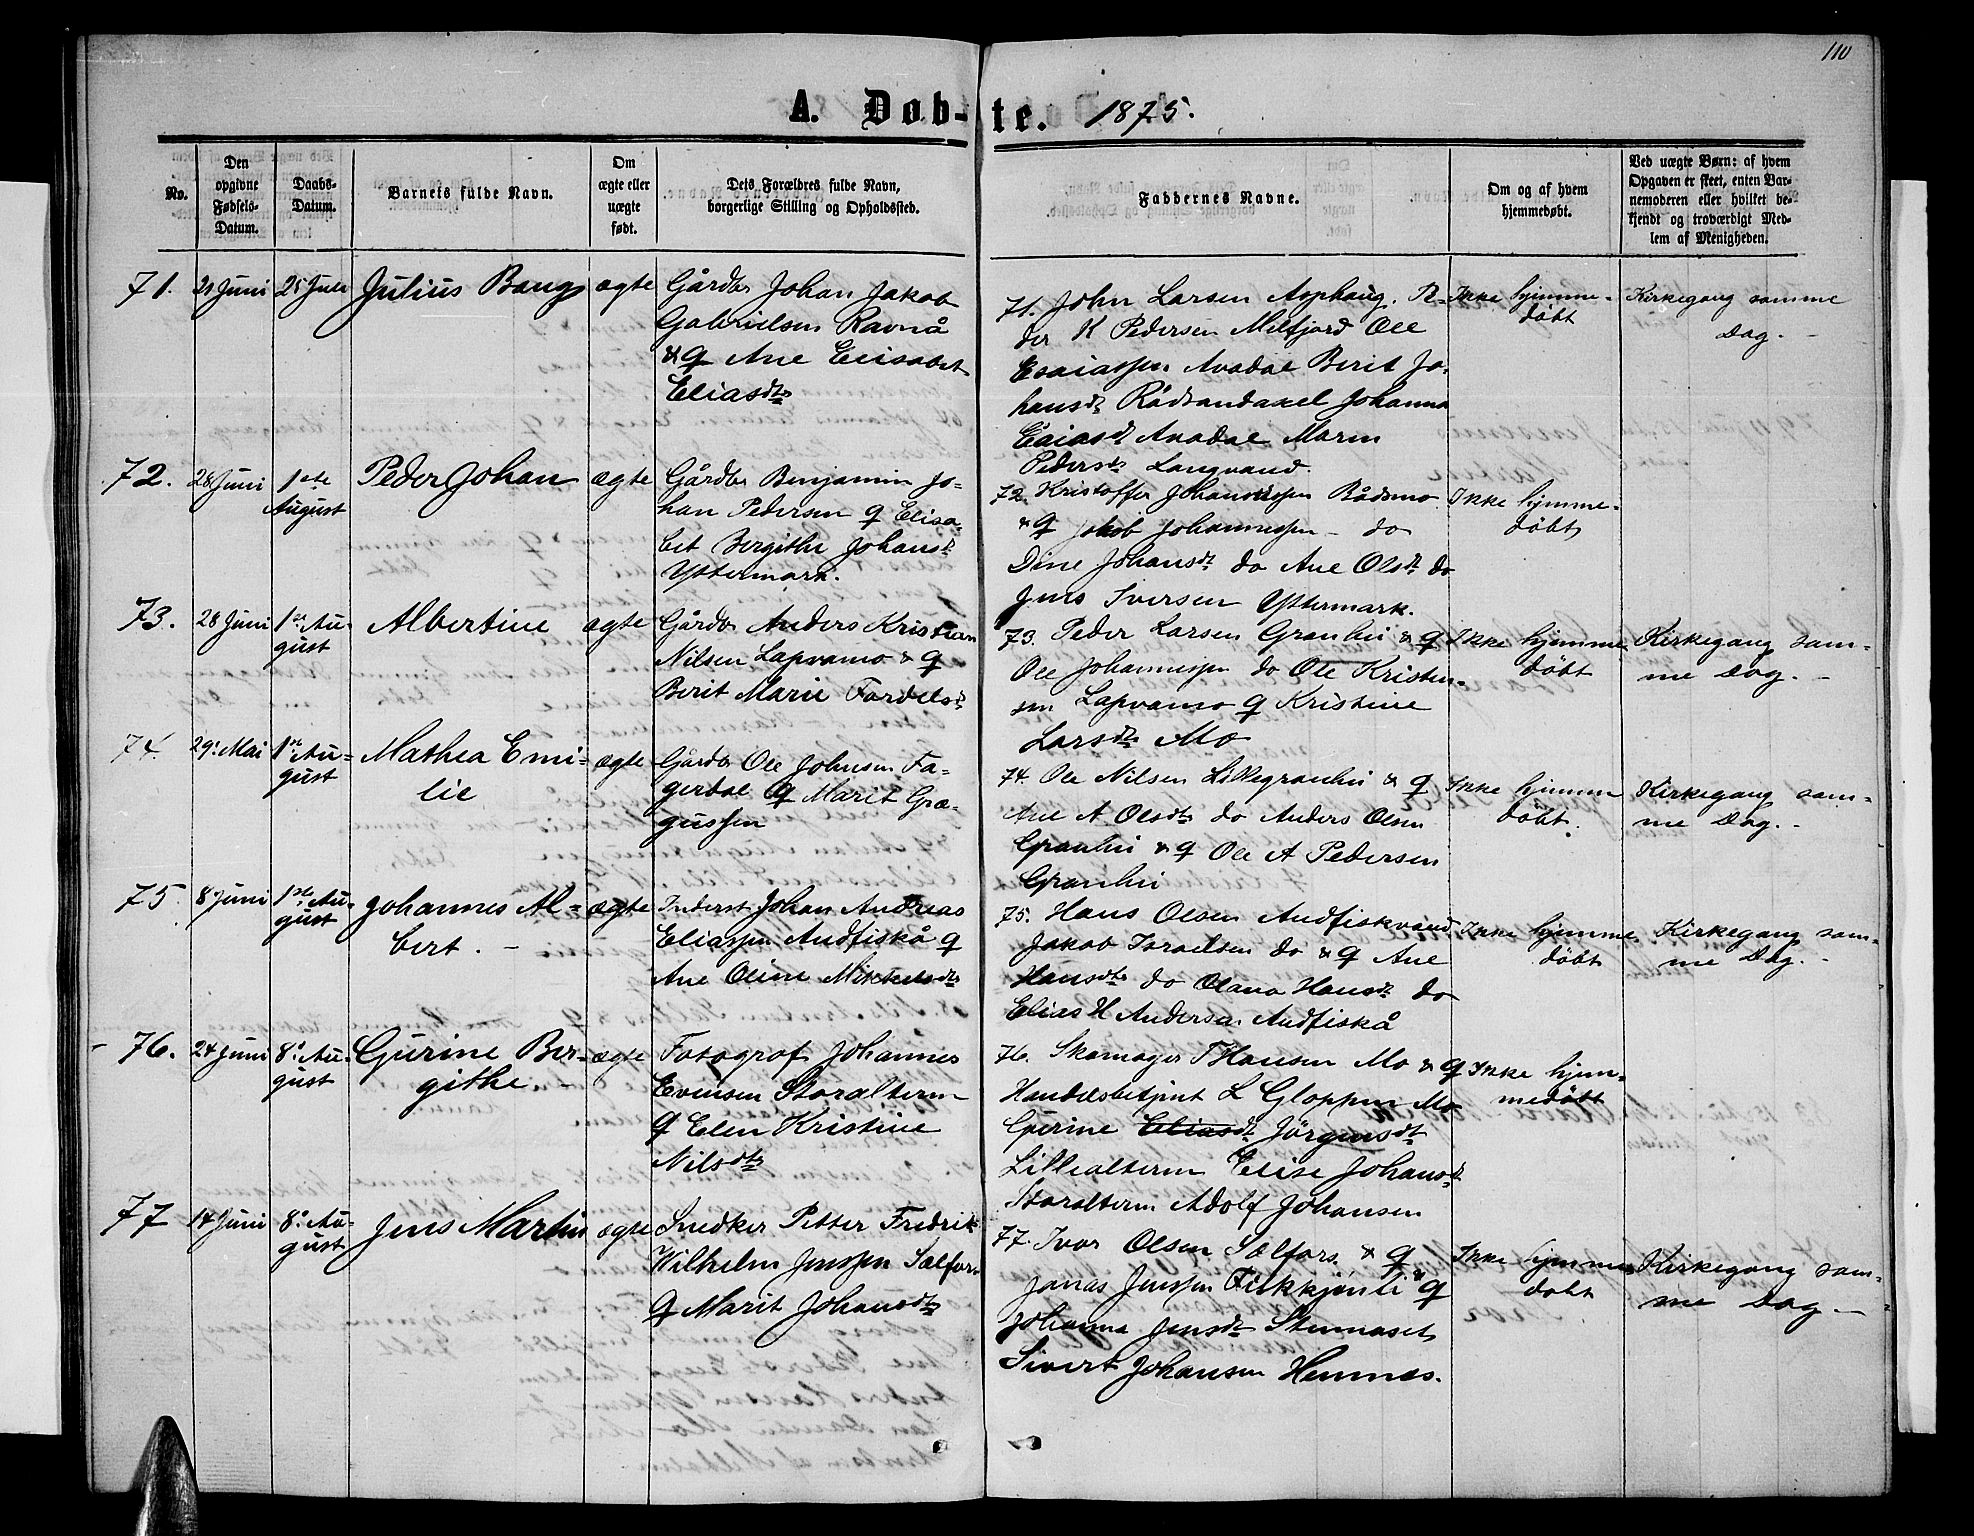 110
A. Døb-te. 1875.
No.
Den opgivne Fødsels-Datum.
Daabs-Datum.
Barnets fulde Navn.
Om ægte eller uægte født.
Dets Forældres fulde Navn, borgerlige Stilling og Opholdssted.
Faddernes Navne.
Om og af hvem hjemmedøbt.
Ved uægte Børn: af hvem Opgaven er skeet, enten Barnemoderen eller hvilket bekjendt og troværdigt Medlem af Menigheden.
71. 21 Juni 25 Juli Julius Bang ægte Gårdbr Johan Jakob
Gabrielsen Ravnå
& q Ane Elisabet
Eliasdtr
71. John Larsen Asphaug. Pe-
der K Pedersen Melfjord Ole
Esaiassen Avadal Berit Jo-
hansdtr Rödsandaxel Johanna
Esaiasdt Avadal Maren
Pedersdtr Langvand.
Ikke hjemme-
döbt
Kirkegang samme
Dag. -
72. 28 Juni 1ste
August
Peder Johan ægte Gårdbr Benjamin Jo-
han Pedersen q Elisa-
bet Bergithe Johansdt
Yttermark.
72. Kristoffer Johannessen Bådsmo
& q Jakob Johannessen - do
Dine Johansdt do Ane Olsdt do
Jens Iversen Yttermark.
Ikke hjemme-
döbt
73. 28 Juni 1ste Au-
gust
Albertine ægte Gårdbr Anders Kristian
Nilsen Lapvamo & q
Berit Marie Fordelsdt
73. Peder Larsen Granhei & q
Ole Johannessen do Ole Kristen-
sen Lapvamo q Kristine
Larsdtr Mo
Ikke hjemme
döbt
Kirkegang sam-
me Dag. -
74. 29. Mai 1ste Au-
gust
Mathea Emi-
lie
ægte Gårdbr Ole Johnsen Fa-
gerdal q Marit Græ-
gussen
74. Ole Nilsen Lillegranhei & q
Ane A Olsdtr do Anders Olsen
Granhei & q Ole A Pedersen
Granhei
Ikke hjemme
döbt.
Kirkegang sam-
me Dag. -
75. 8 Juni 1ste Au-
gust
Johannes Al-
bert. -
ægte Inderst Johan Andreas
Eliassen Audfiskå q
Ane Oline Mikkelsdtr
75. Hans Olsen Audfiskvand
Jakob Israelsen do & q Ane
Hansdtr do Olava Hansdt do
Elias H Andersen Audfiskå
Ikke hjemme
döbt
Kirkegang sam-
me Dag. -
- 76. 24 Juni 8. Au-
gust
Gurine Ber-
githe. -
ægte Fotograf Johannes
Evensen Storalteren
q Elen Kristine
Nilsdtr
76. Skomager T Hansen Mo & q
Handelsbetjent L Gloppen Mo
Gurine Eliasdt Jörgensdt
Lillealteren Elise Johansdt
Storalteren Adolf Johansen
Ikke hjem-
medöbt
77 14 Juni 8. Au-
gust
Jens Martin ægte Snedker Petter Fredrik
Wilhelm Jenssen Selfors
q Marit Johansdtr
77. Ivar Olsen Selfors & q
Jonas Jenssen Fiskkjönli & q
Johanna Jensdt Stenneset
Sivert Johansen Hemnes.
Ikke hjemme
döbt
Kirkegang sam-
me Dag. -